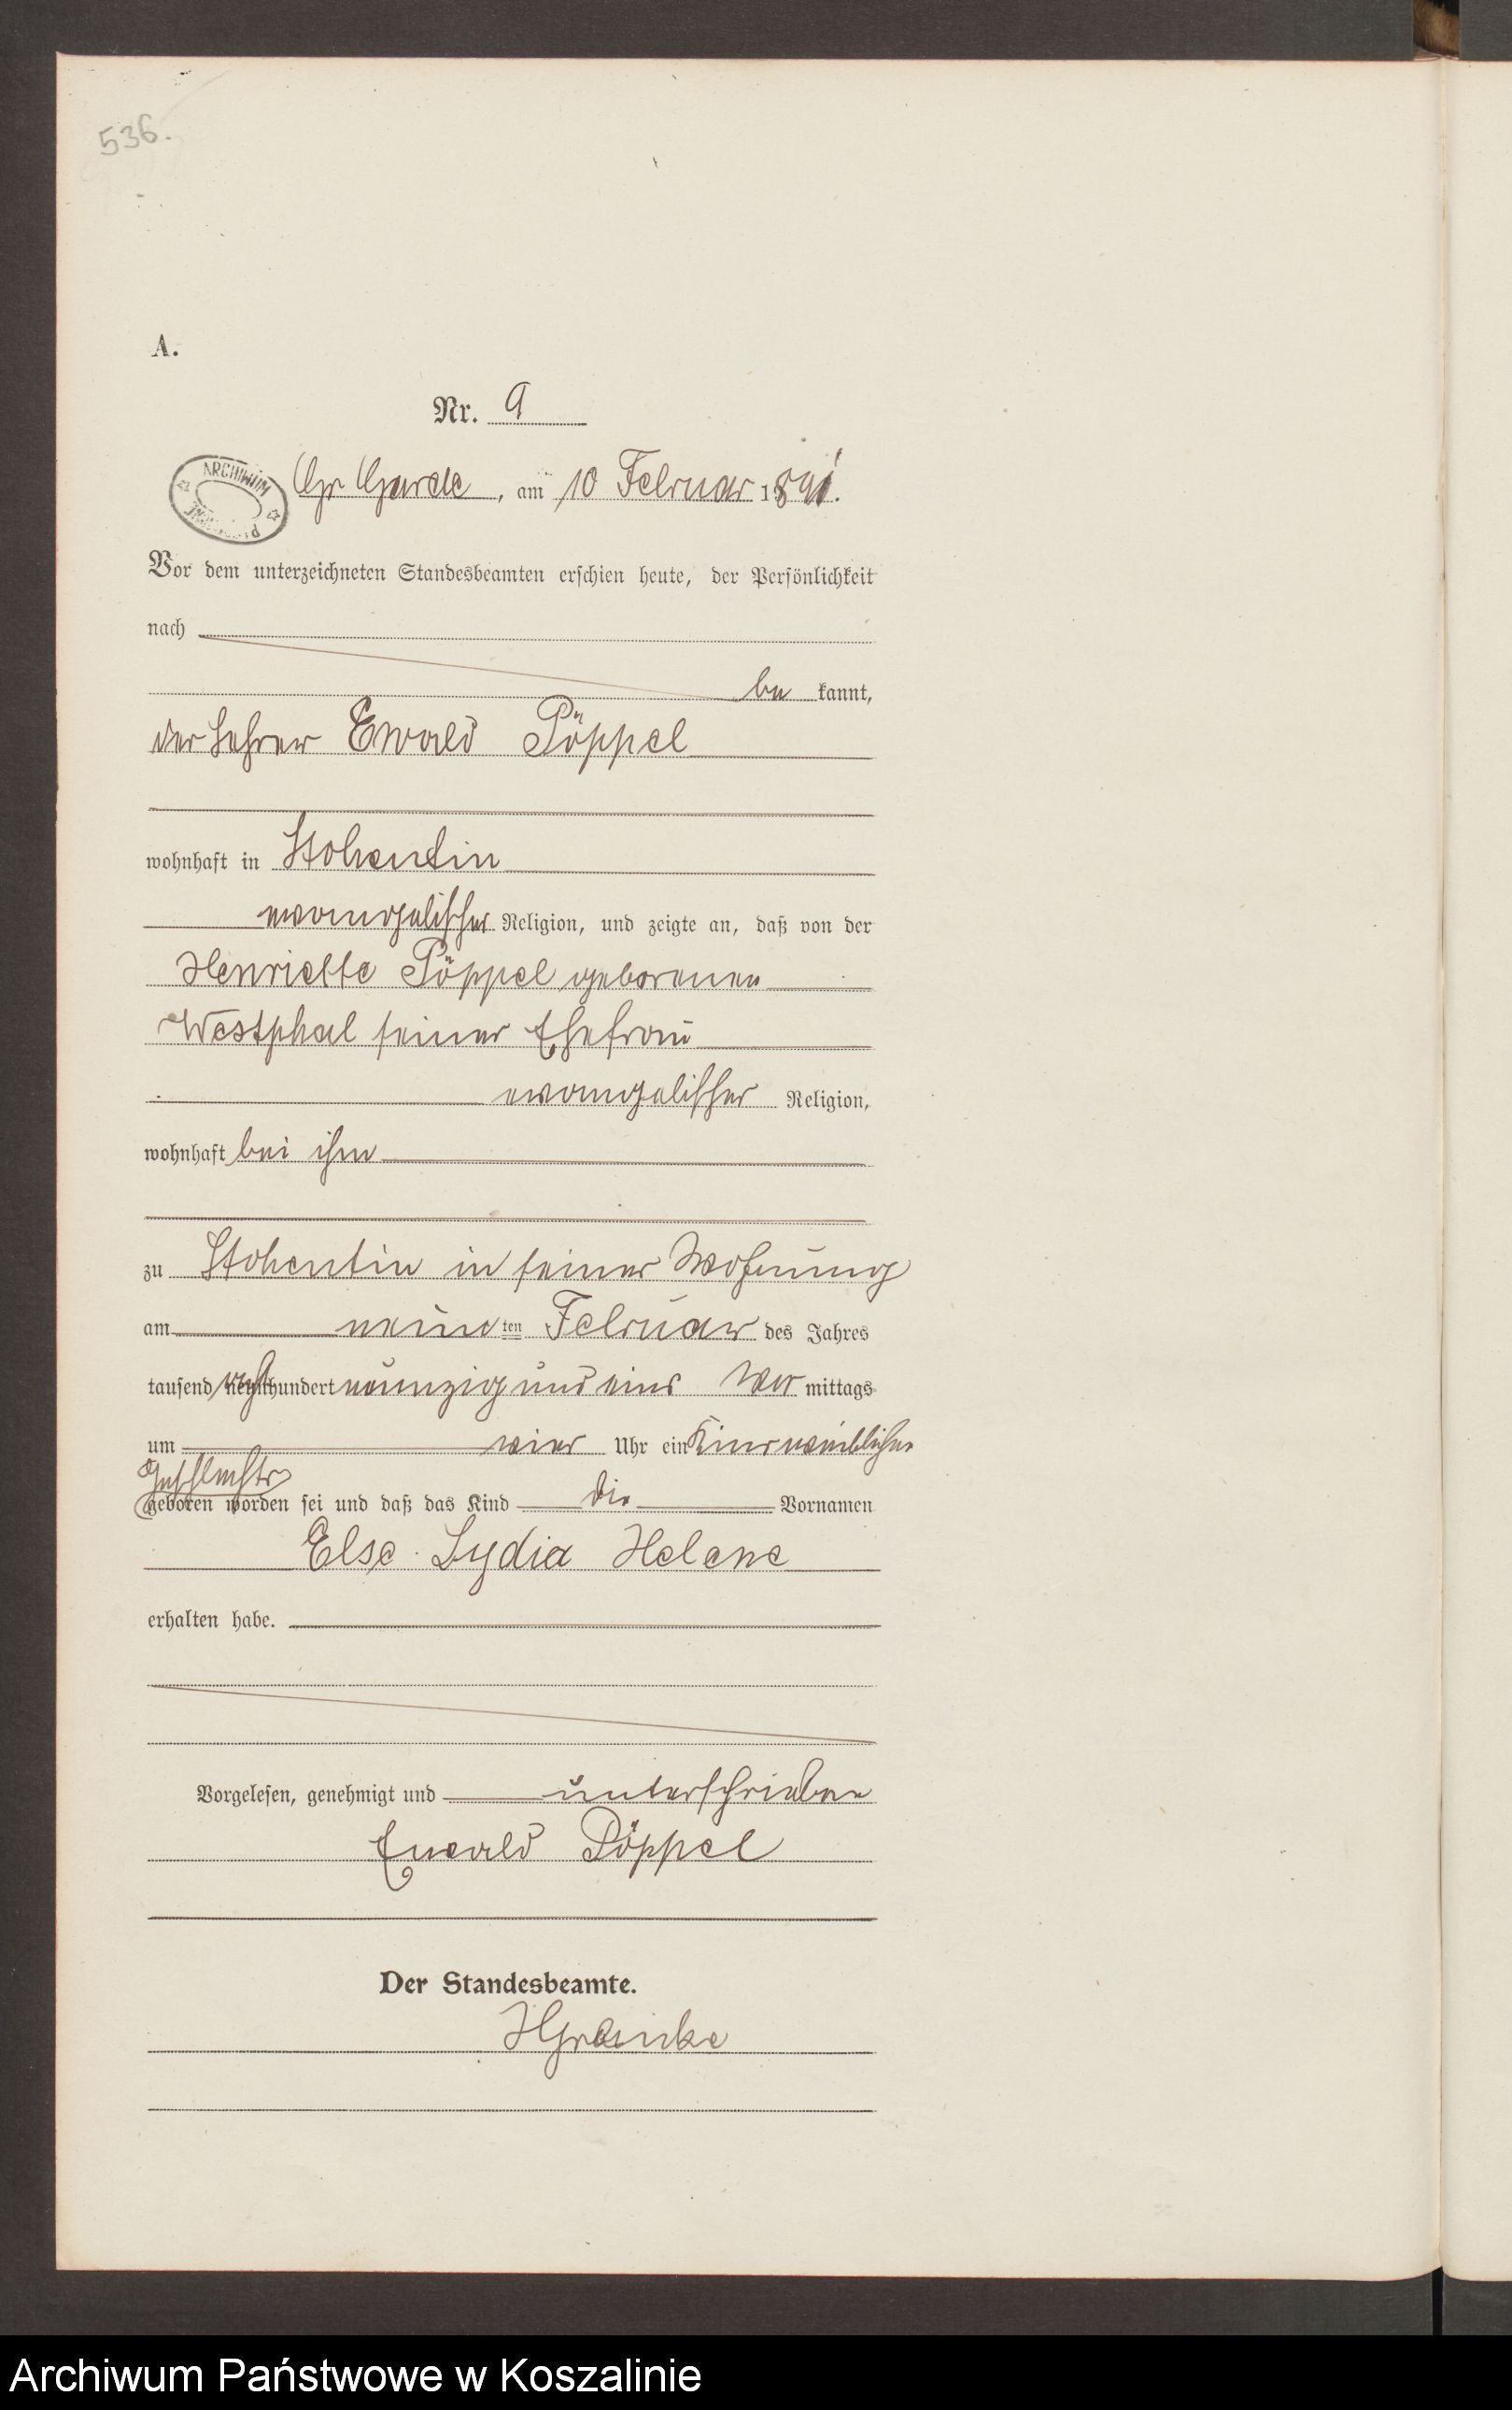 536.
A.
Nr. 9
ARCHIWUM
Gr Garde, am 10 Februar 1891.
Vor dem unterzeichneten Standesbeamten erschien heute, der Persönlichkeit
nach
be kannt,
der Lehrer Ewald Pöppel
wohnhaft in Stohentin
evangelischer Religion, und zeigte an, daß von der
Henriette Pöppel geborenen
Westphal seiner Ehefrau
evangelischer Religion,
wohnhaft bei ihm
zu Stohentin in seiner Wohnung
am neun ten Februar des Jahres
tausend acht hundert neunzig und eins Vor mittags
um vier Uhr ein Kind weiblichen
Geschlechts
geboren worden sei und daß das Kind die Vornamen
Else Lydia Helene
erhalten habe.
Vorgelesen, genehmigt und unterschrieben
Ewald Pöppel
Der Standesbeamte.
Archiwum Państwowe w Koszalinie